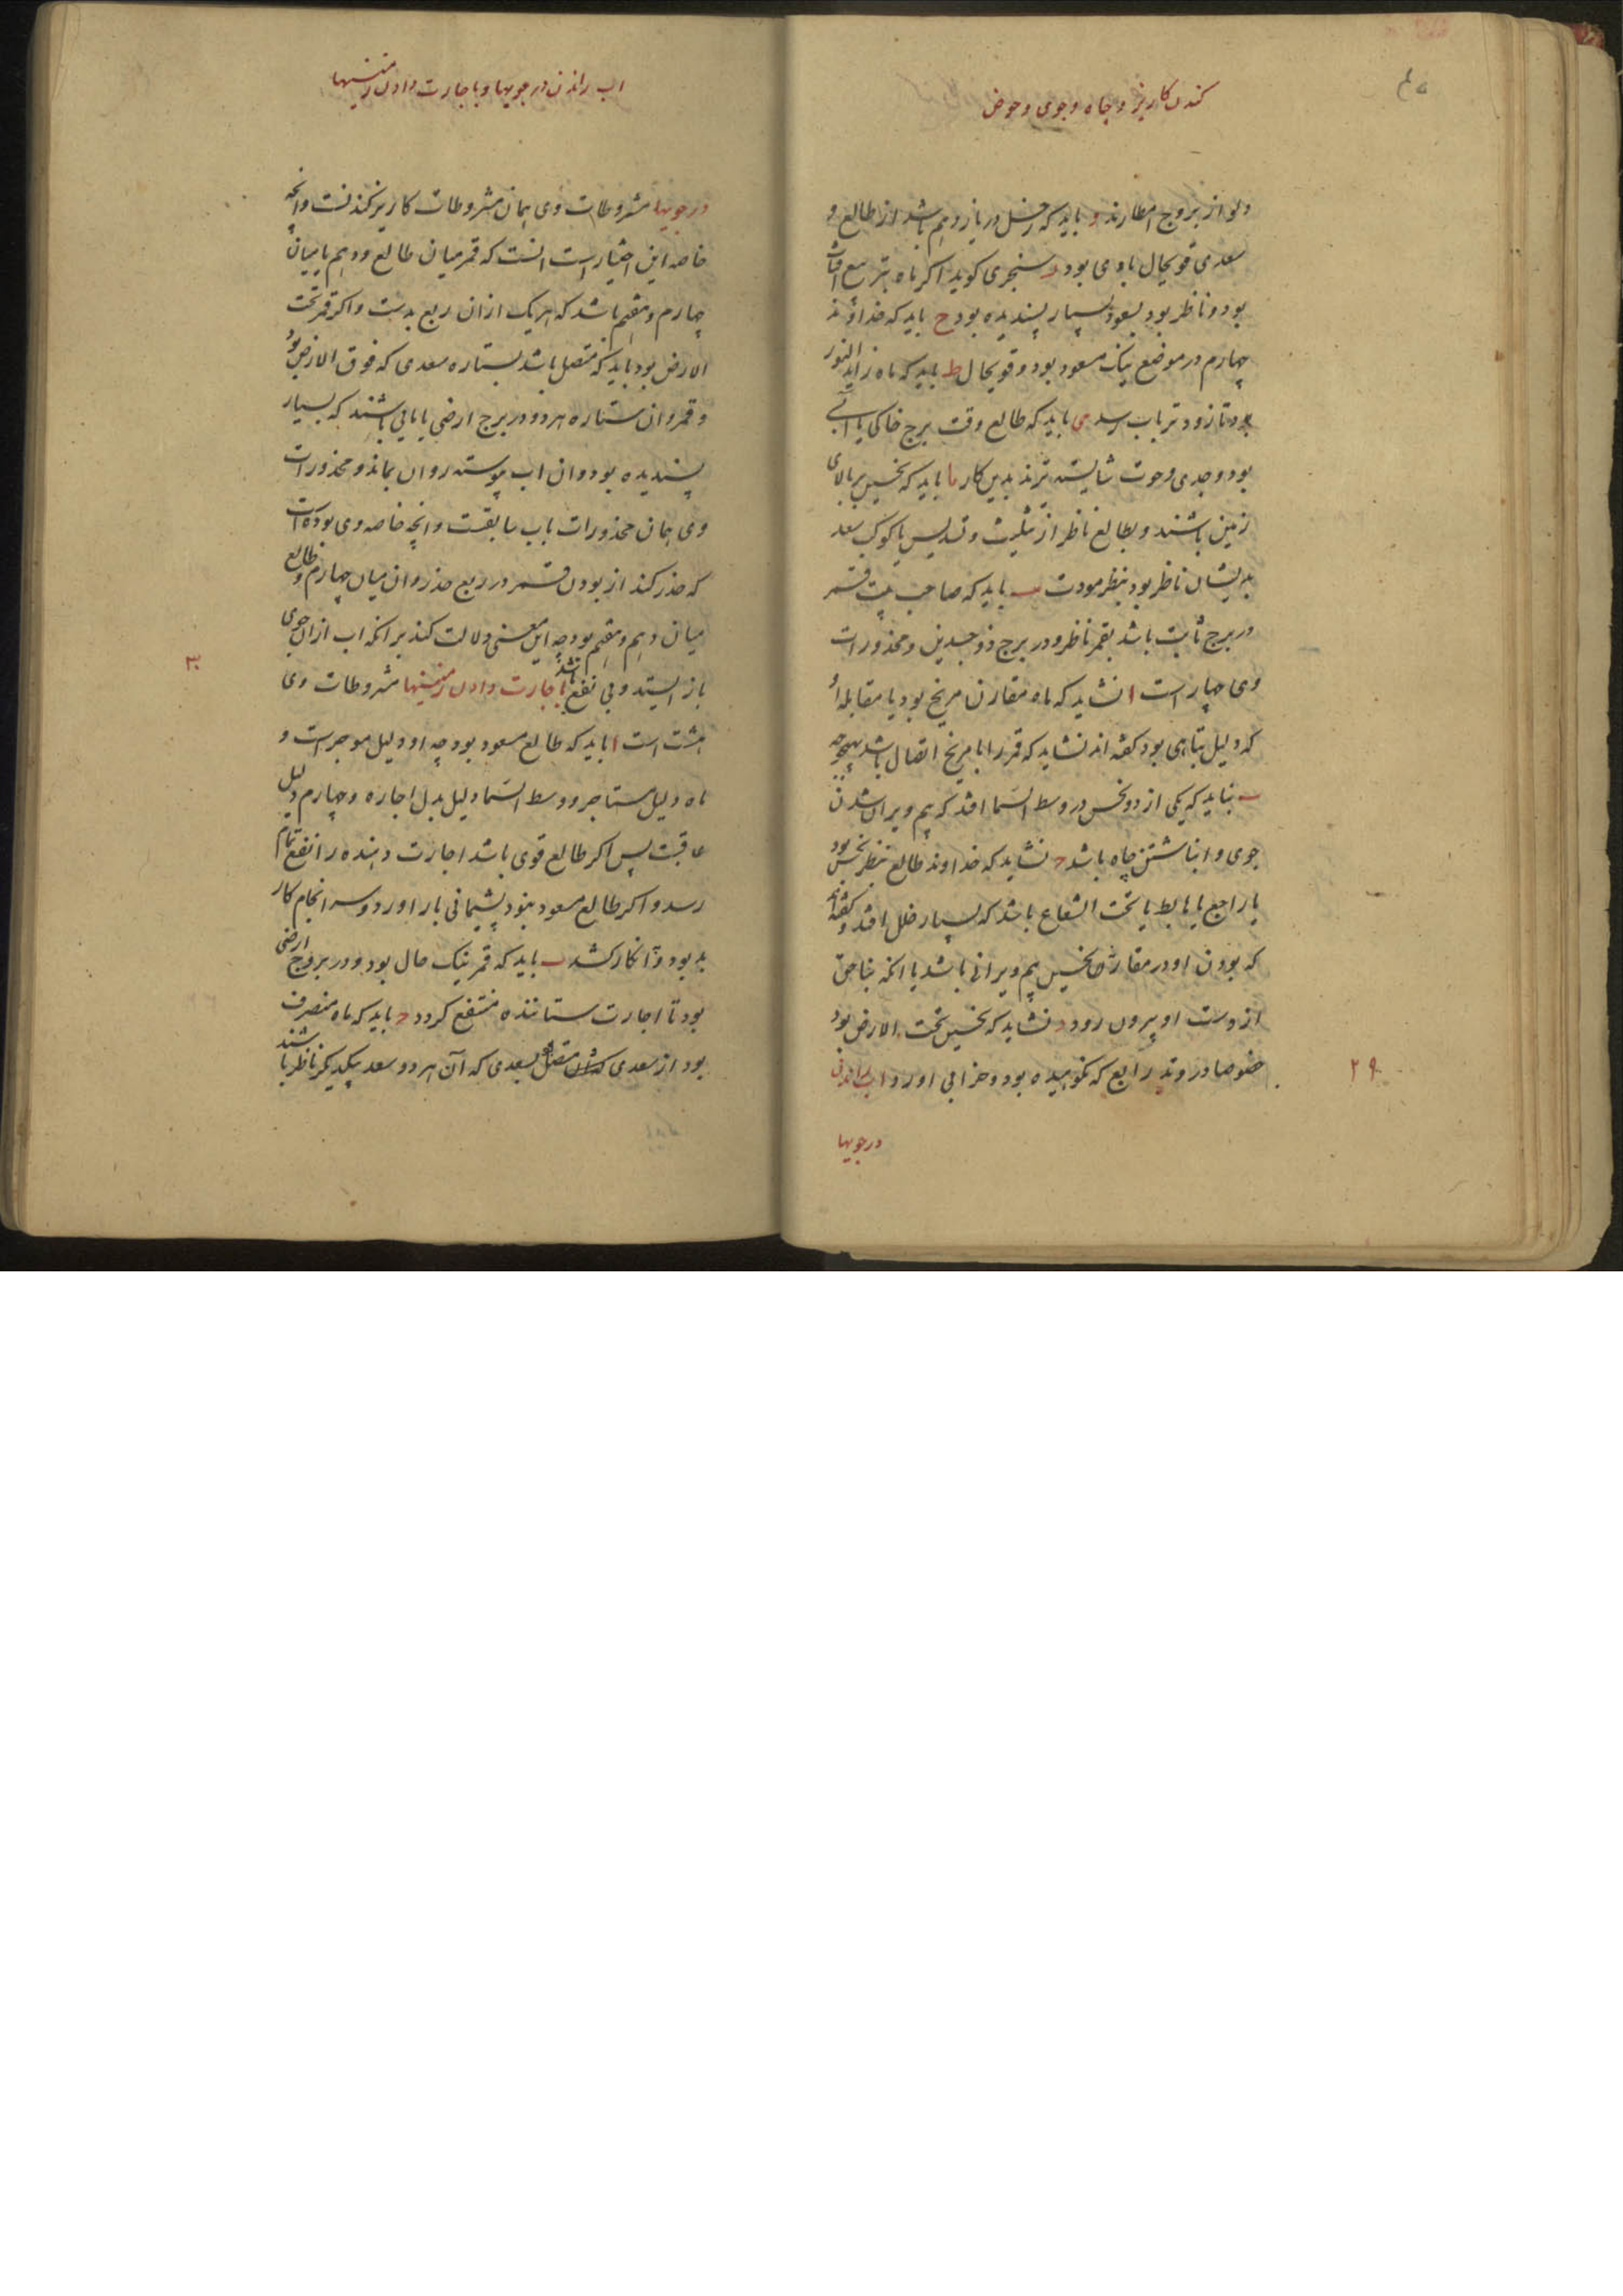 کندن کاریز و چاه و جوی و حوض
دلو از بروج امطارند و باید که زحل در یازدهم باشد از طالع و
سعدی قویحال باوی بود ر سنجری کوید اکر ماه بتربیع افتاب
بود و ناظر بود بسعود بسیار پسندیده بود ح باید که خداوند
چهارم در موضع نیک مسعود بود و قویحال ط باید که ماه زاید النور
بود تا زودتر باب رسد ی باید که طالع وقت برج خاکی یا آبی
بود و جدی و حوت شایسته ترند بدین کار یا باید که نحسین بر بالای
زمین باشند و بطالع ناظر از تثلیث و تسدیس یا کوکب سعد
بدیشان ناظر بود بنظر مودت یب باید که صاحب بیت قمر
در برج ثابت باشد بقمر ناظر و در برج ذو جسدین و محذورات
وی چهار است ا نشاید که ماه مقارن مریخ بود یا مقابله او
که دلیل تباهی بود کفته اند نشاید که قمر را با مریخ اتصال باشد بهیچ وجه
ب نباید که یکی از دو نحس در وسط السما افتد که بیم ویران شدن
جوی و انباشتن چاه باشد ج نشاید که خداوند طالع بنظر نحس بود
یا راجع یا هابط یا تحت الشعاع باشد که بسیار خلل افتد و کفته اند
که بودن او در مقارنه نحسین بیم ویرانی باشد یا انکه بناحق
از دست او بیرون رود د نشاید که نحسین تحت الارض بود
خصوصا در وتد رابع که نکوهیده بود و خرابی اورد اب راندن
۲۹
در جویها
اب راندن در جویها و باجارت دادن زمینها
در جویها مشروطات وی همان مشروطات کاریز کندنست وانچه
خاصه این اختیار است انست که قمر میان طالع و دهم یا میان
چهارم و هفتم باشد که هر یک ازان ربع بدست و اکر قمر تحت
الارض بود باید که متصل باشد بستاره سعدی که فوق الارض بود
و قمر وان ستاره هر دو در برج ارضی یا بابی باشند که بسیار
پسندیده بود وان اب پیوسته روان بماند و محذورات
وی همان محذورات باب سابقست وانچه خاصه وی بود انست
که حذر کند از بودن قمر در ربع حذر وان میان چهارم و طالع
میان دهم و هفتم بود چه این معنی دلالت کند بر انکه اب ازان جوی
باز ایستد و بی نفع باشد باجارت دادن زمینها مشروطات وی
۳۰
هشت است ا باید که طالع مسعود بود چه او دلیل موجر است و
ماه دلیل مستاجر و وسط السما دلیل بدل اجاره و چهارم دلیل
عاقبت پس اکر طالع قوی باشد اجارت دهنده را نفع تمام
رسد و اکر طالع مسعود نبود پشیمانی بار اورد و سرانجام کار
بد بود و انکار کشد ب باید که قمر نیک حال بود و در بروج ارضی
بود تا اجارت ستاننده منتفع کردد ج باید که ماه منصرف
بود از سعدی و متصل بسعدی که آن هر دو سعد بیکدیکر ناظر باشند